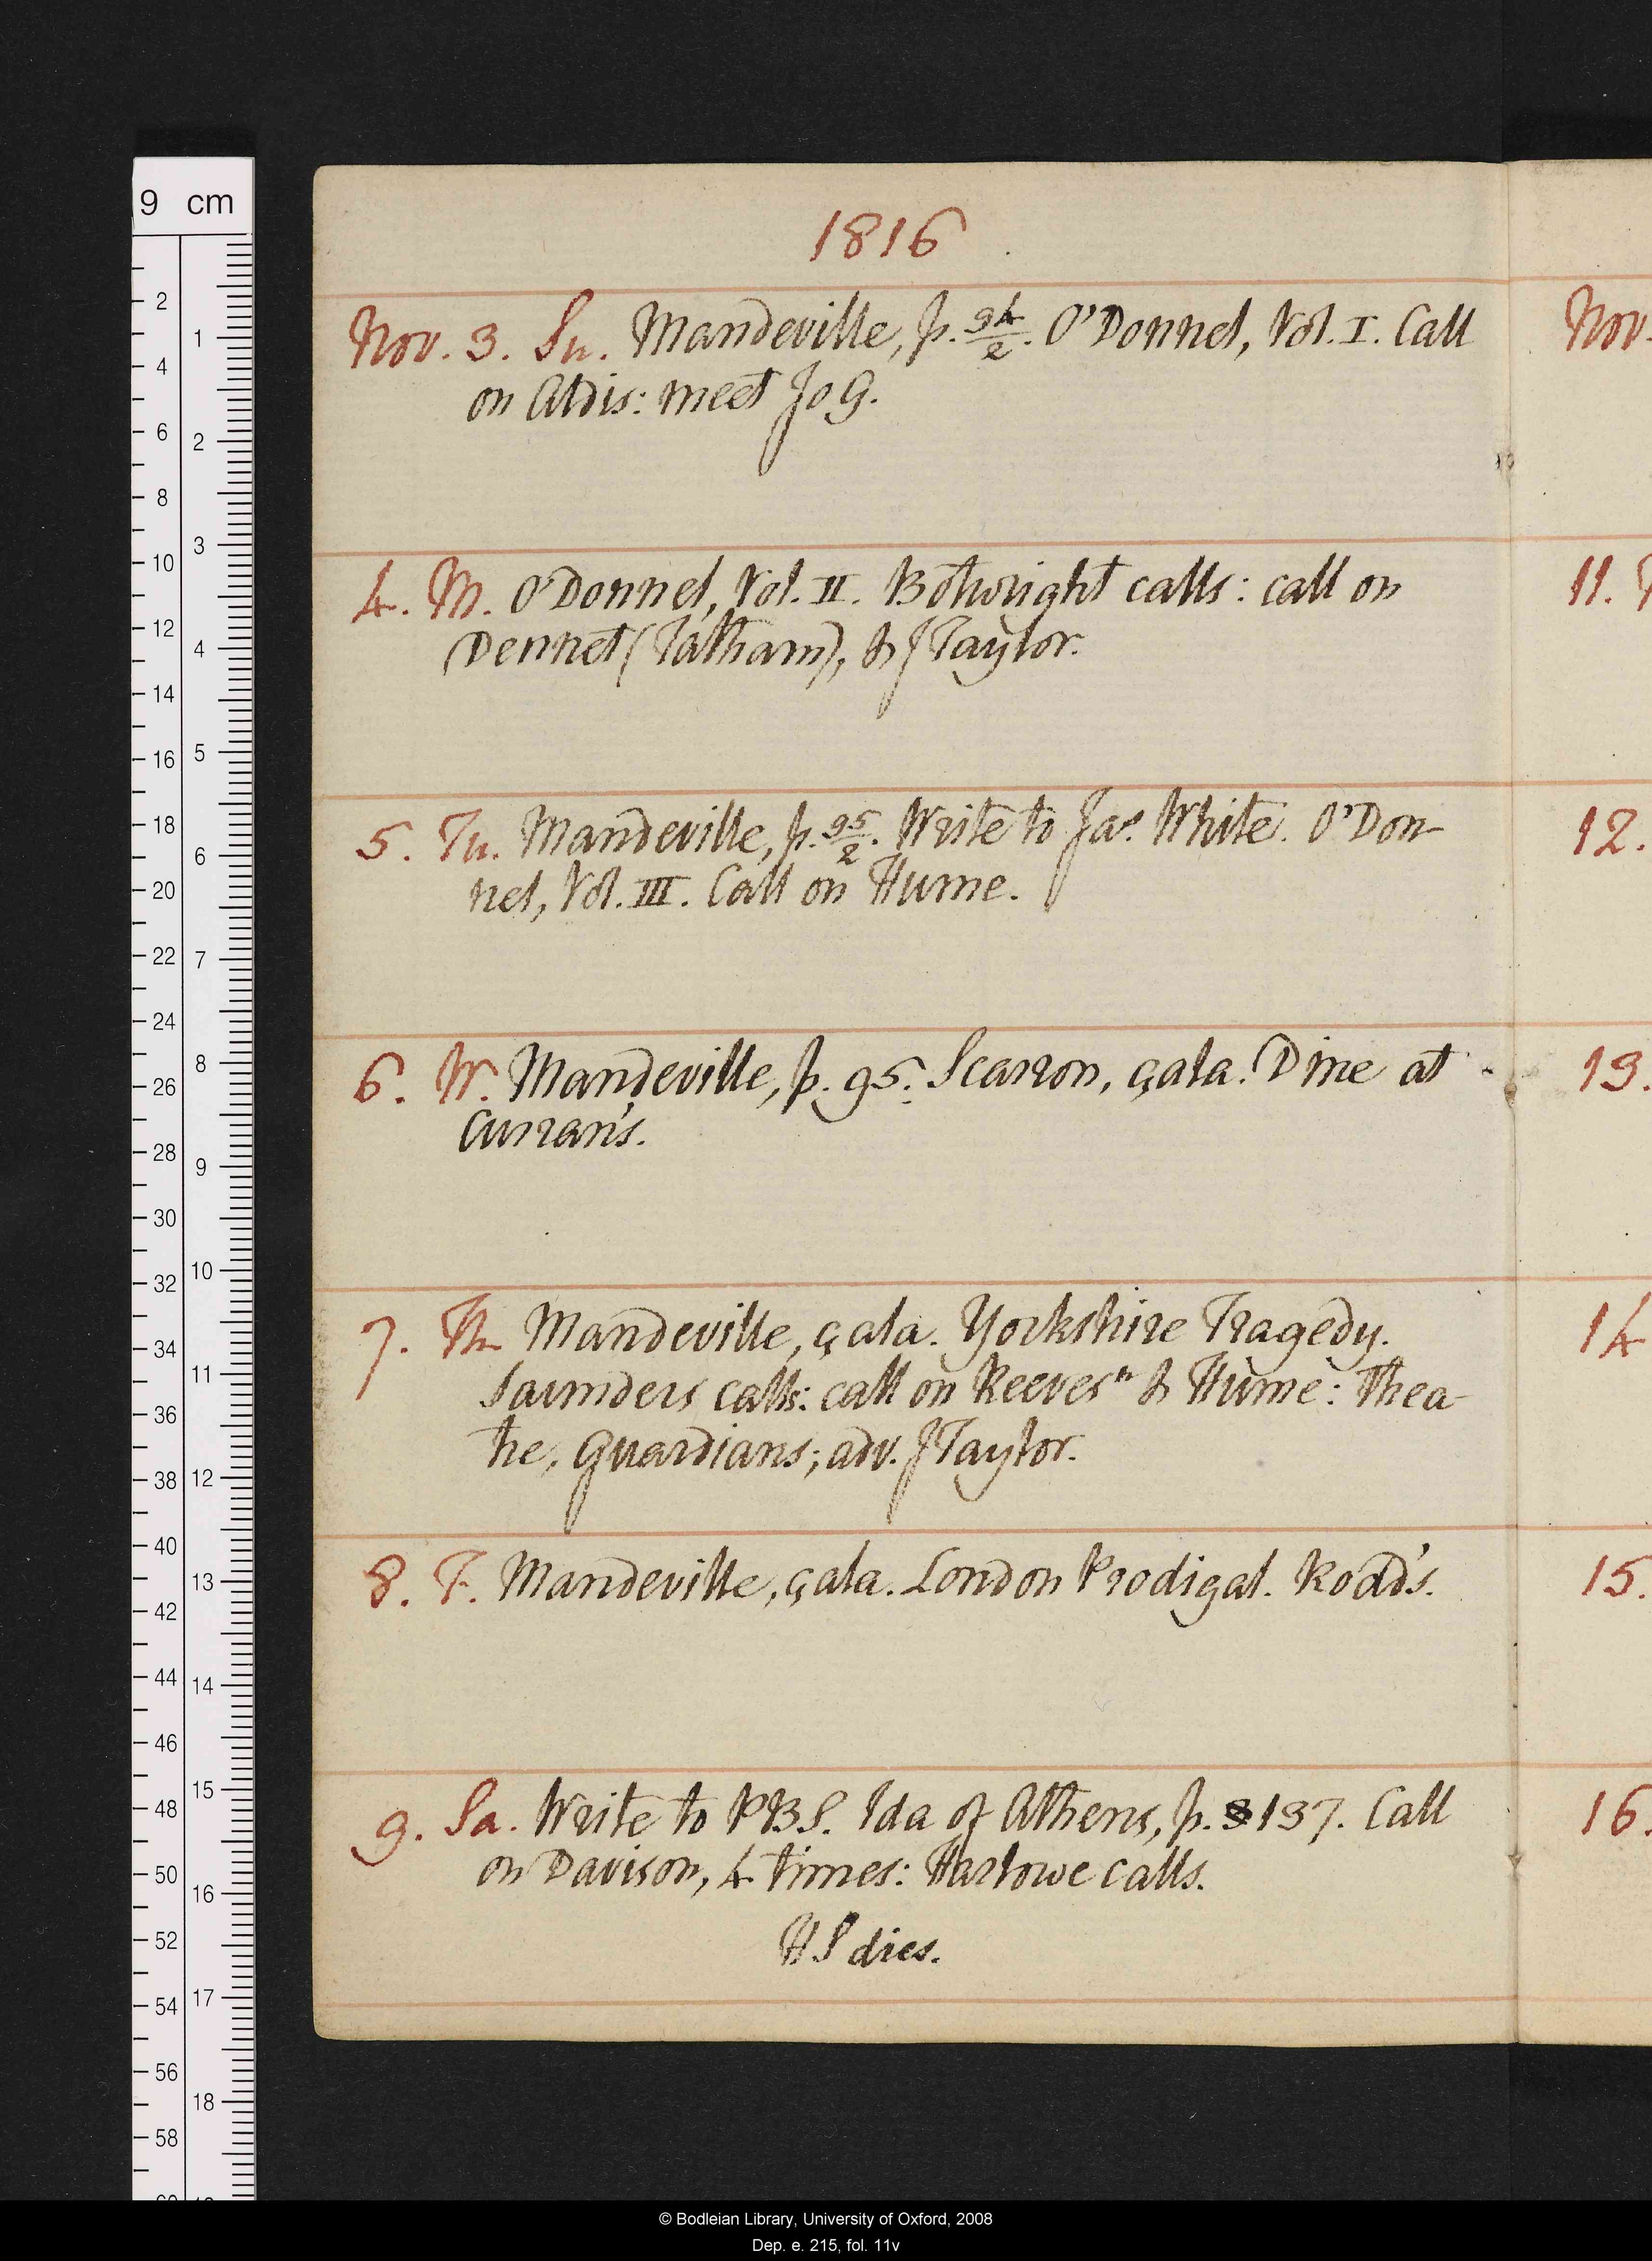 9 cm
1816
Nov. 3. Su. Mandeville, p. 94/2. O'Donnel, Vol. I. Call
on Aldis: meet J o G.
4. M. O'Donnel, Vol. II. Botwright calls: call on
Dennet (Tatham), & J Taylor.
5. Tu. Mandeville, p. 95/2. Write to Jas White. O'Don-
nel, Vol. III. Call on Hume.
6. W. Mandeville, p. 95. Scarron, çala. Dine at
Curran's.
7. Th. Mandeville, çala. Yorkshire Tragedy.
Saunders calls: call on Reevesn & Hume: Thea-
tre, Guardians; adv. J Taylor.
8. F. Mandeville, çala. London Prodigal. Rodd's.
9. Sa. Write to PBS. Ida of Athens, p. 137. Call
on Davison, 4 times: Harlowe calls.
H S dies.
Nov.
11.
12.
13.
14
15.
16.
© Bodleian Library, University of Oxford, 2008
Dep. e. 215, fol. 11v